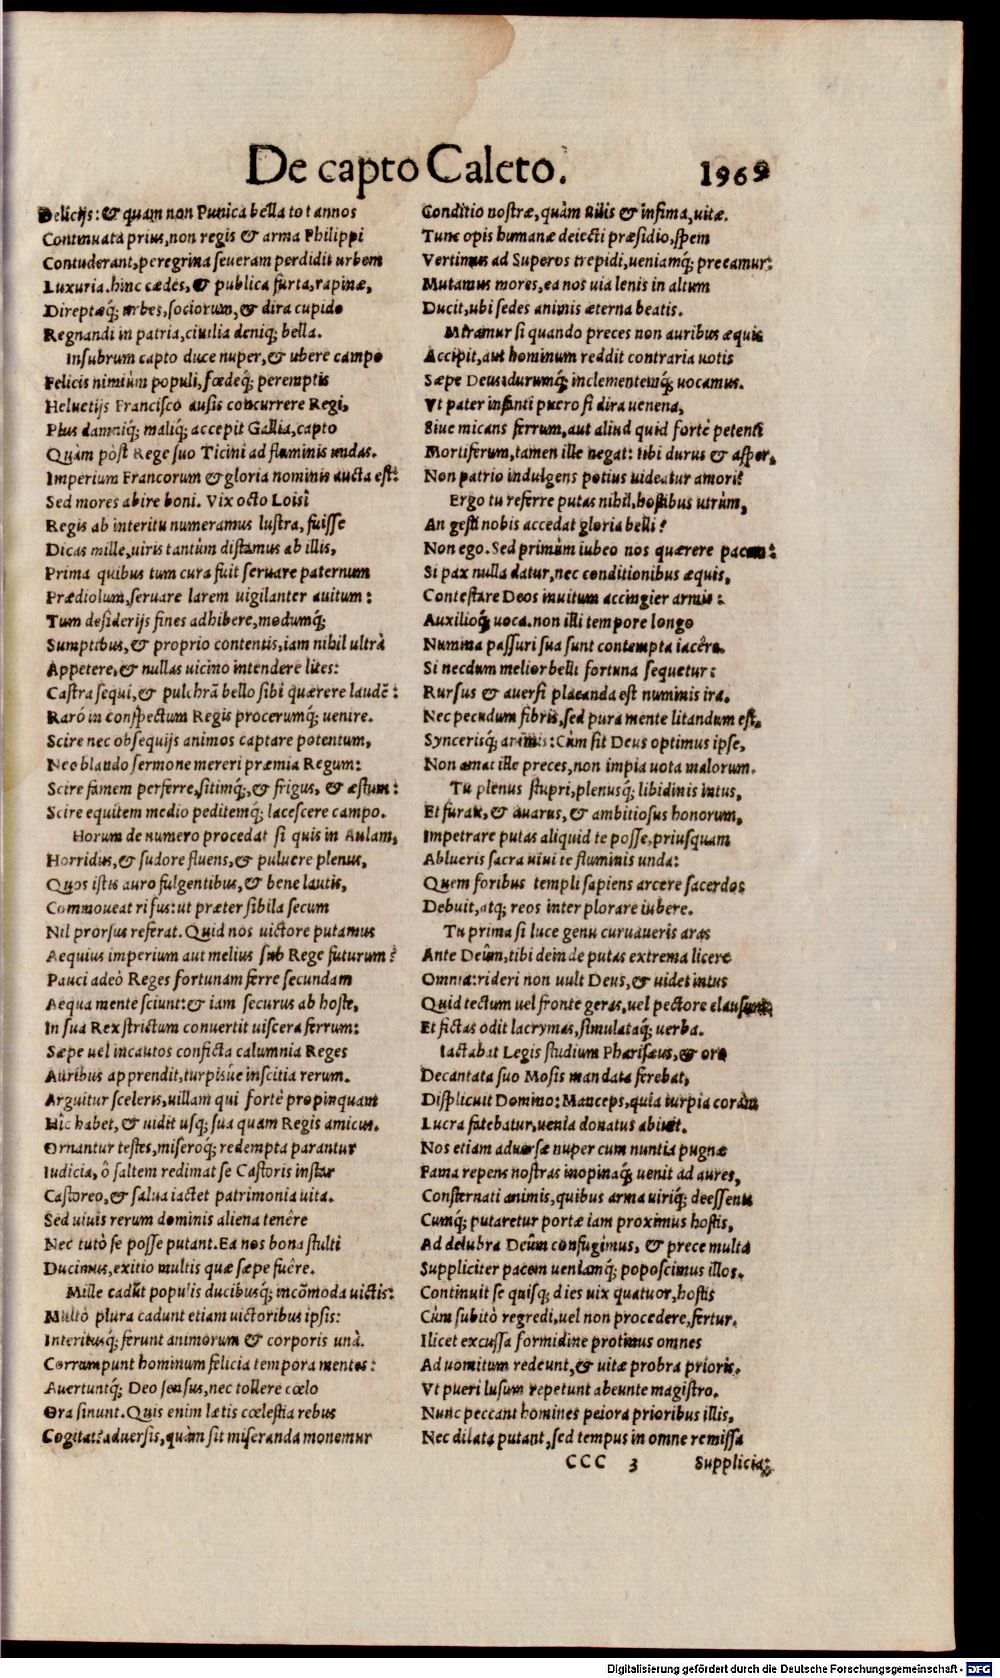 De capto Caleto. 1969
Delicijs: & quam non Punica bella tot annos
Continuata prius, non regis & arma Philippi
Contuderant, peregrina seueram perdidit urbem
Luxuria. hinc cædes, & publica furta, rapinæ,
Direptæq́; urbes, sociorum, & dira cupido
Regnandi in patria, ciuilia deniq; bella.
Insubrum capto duce nuper, & ubere campo
Felicis nimiùm populi, fœdeq́; peremptis
Heluetijs Francisco ausis concurrere Regi,
Plus damniq́; maliq́; accepit Gallia, capto
Quàm pòst Rege suo Ticini ad fluminis undas.
Imperium Francorum & gloria nominis aucta est:
Sed mores abire boni. Vix octo Loisi
Regis ab interitu numeramus lustra, fuisse
Dicas mille, uiris tantùm distamus ab illis,
Prima quibus tum cura fuit seruare paternum
Prædiolum, seruare larem uigilanter auitum:
Tum desiderijs fines adhibere, modumq́;
Sumptibus, & proprio contentis, iam nihil ultrà
Appetere, & nullas uicino intendere lites:
Castra sequi, & pulchrã bello sibi quærere laudẽ:
Rarò in conspectum Regis procerumq́; uenire.
Scire nec obsequijs animos captare potentum,
Nec blando sermone mereri præmia Regum:
Scire famem perferre, sitimq́;, & frigus, & æstum:
Scire equitem medio peditemq́; lacescere campo.
Horum de numero procedat si quis in Aulam,
Horridus, & sudore fluens, & puluere plenus,
Quos istis auro fulgentibus, & bene lautis,
Commoueat risus: ut præter sibila secum
Nil prorsus referat. Quid nos uictore putamus
Aequius imperium aut melius sub Rege futurum?
Pauci adeò Reges fortunam ferre secundam
Aequa mente sciunt: & iam securus ab hoste,
In sua Rex strictum conuertit uiscera ferrum:
Sæpe uel incautos conficta calumnia Reges
Auribus apprendit, turpisúe inscitia rerum.
Arguitur sceleris, uillam qui fortè propinquam
Hîc habet, & uidit usq; sua quam Regis amicus.
Ornantur testes, miseroq́; redempta parantur
Iudicia, ô saltem redimat se Castoris instar
Castoreo, & salua iactet patrimonia uita.
Sed uiuis rerum dominis aliena tenêre
Nec tutò se posse putant. Ea nos bona stulti
Ducimus, exitio multis quæ sæpe fuêre.
Mille cadũt populis ducibusq́; incõmoda uictis:
Multò plura cadunt etiam uictoribus ipsis:
Interitusq́; ferunt animorum & corporis unà.
Corrumpunt hominum felicia tempora mentes:
Auertuntq́; Deo sensus, nec tollere cœlo
Ora sinunt. Quis enim lætis cœlestia rebus
Cogitat? aduersis, quàm sit miseranda monemur
Conditio nostræ, quàm uilis & infima, uitæ.
Tunc opis humanæ deiecti præsidio, spem
Vertimus ad Superos trepidi, ueniamq́; precamur:
Mutamus mores, ea nos uia lenis in altum
Ducit, ubi sedes animis æterna beatis.
Miramur si quando preces non auribus æquis
Accipit, aut hominum reddit contraria uotis
Sæpe Deus: durumq́; inclementemq́; uocamus.
Vt pater infanti puero si dira uenena,
Siue micans ferrum, aut aliud quid fortè petenti
Mortiferum, tamen ille negat: tibi durus & asper,
Non patrio indulgens potius uideatur amori?
Ergo tu referre putas nihil, hostibus utrùm,
An gesti nobis accedat gloria belli?
Non ego. Sed primùm iubeo nos quærere pacem:
Si pax nulla datur, nec conditionibus æquis,
Contestare Deos inuitum accingier armis:
Auxilioq́; uoca. non illi tempore longo
Numina passuri sua sunt contempta iacêre.
Si necdum melior belli fortuna sequetur:
Rursus & auersi placanda est numinis ira.
Nec pecudum fibris, sed pura mente litandum est,
Syncerisq́; animis: Cùm sit Deus optimus ipse,
Non amat ille preces, non impia uota malorum.
Tu plenus stupri, plenusq́; libidinis intus,
Et furax, & auarus, & ambitiosus honorum,
Impetrare putas aliquid te posse, priusquam
Ablueris sacra uiui te fluminis unda:
Quem foribus templi sapiens arcere sacerdos
Debuit, atq; reos inter plorare iubere.
Tu prima si luce genu curuaueris aras
Ante Deûm, tibi deinde putas extrema licere
Omnia: rideri non uult Deus, & uidet intus
Quid tectum uel fronte geras, uel pectore clausum:
Et fictas odit lacrymas, simulataq́; uerba.
Iactabat Legis studium Pharisæus, & ore
Decantata suo Mosis mandata ferebat,
Displicuit Domino: Manceps, quia turpia coràm
Lucra fatebatur, uenia donatus abiuit.
Nos etiam aduersæ nuper cum nuntia pugnæ
Fama repens nostras inopinaq́; uenit ad aures,
Consternati animis, quibus arma uiriq́; deessent
Cumq́; putaretur portæ iam proximus hostis,
Ad delubra Deûm confugimus, & prece multa
Suppliciter pacem ueniamq́; poposcimus illos.
Continuit se quisq; dies uix quatuor, hostis
Cùm subitò regredi, uel non procedere, fertur.
Ilicet excussa formidine protinus omnes
Ad uomitum redeunt, & uitæ probra prioris.
Vt pueri lusum repetunt abeunte magistro.
Nunc peccant homines peiora prioribus illis,
Nec dilata putant, sed tempus in omne remissa
CCC 3 Supplicia:
Digitalisierung gefördert durch die Deutsche Forschungsgemeinschaft - DFG